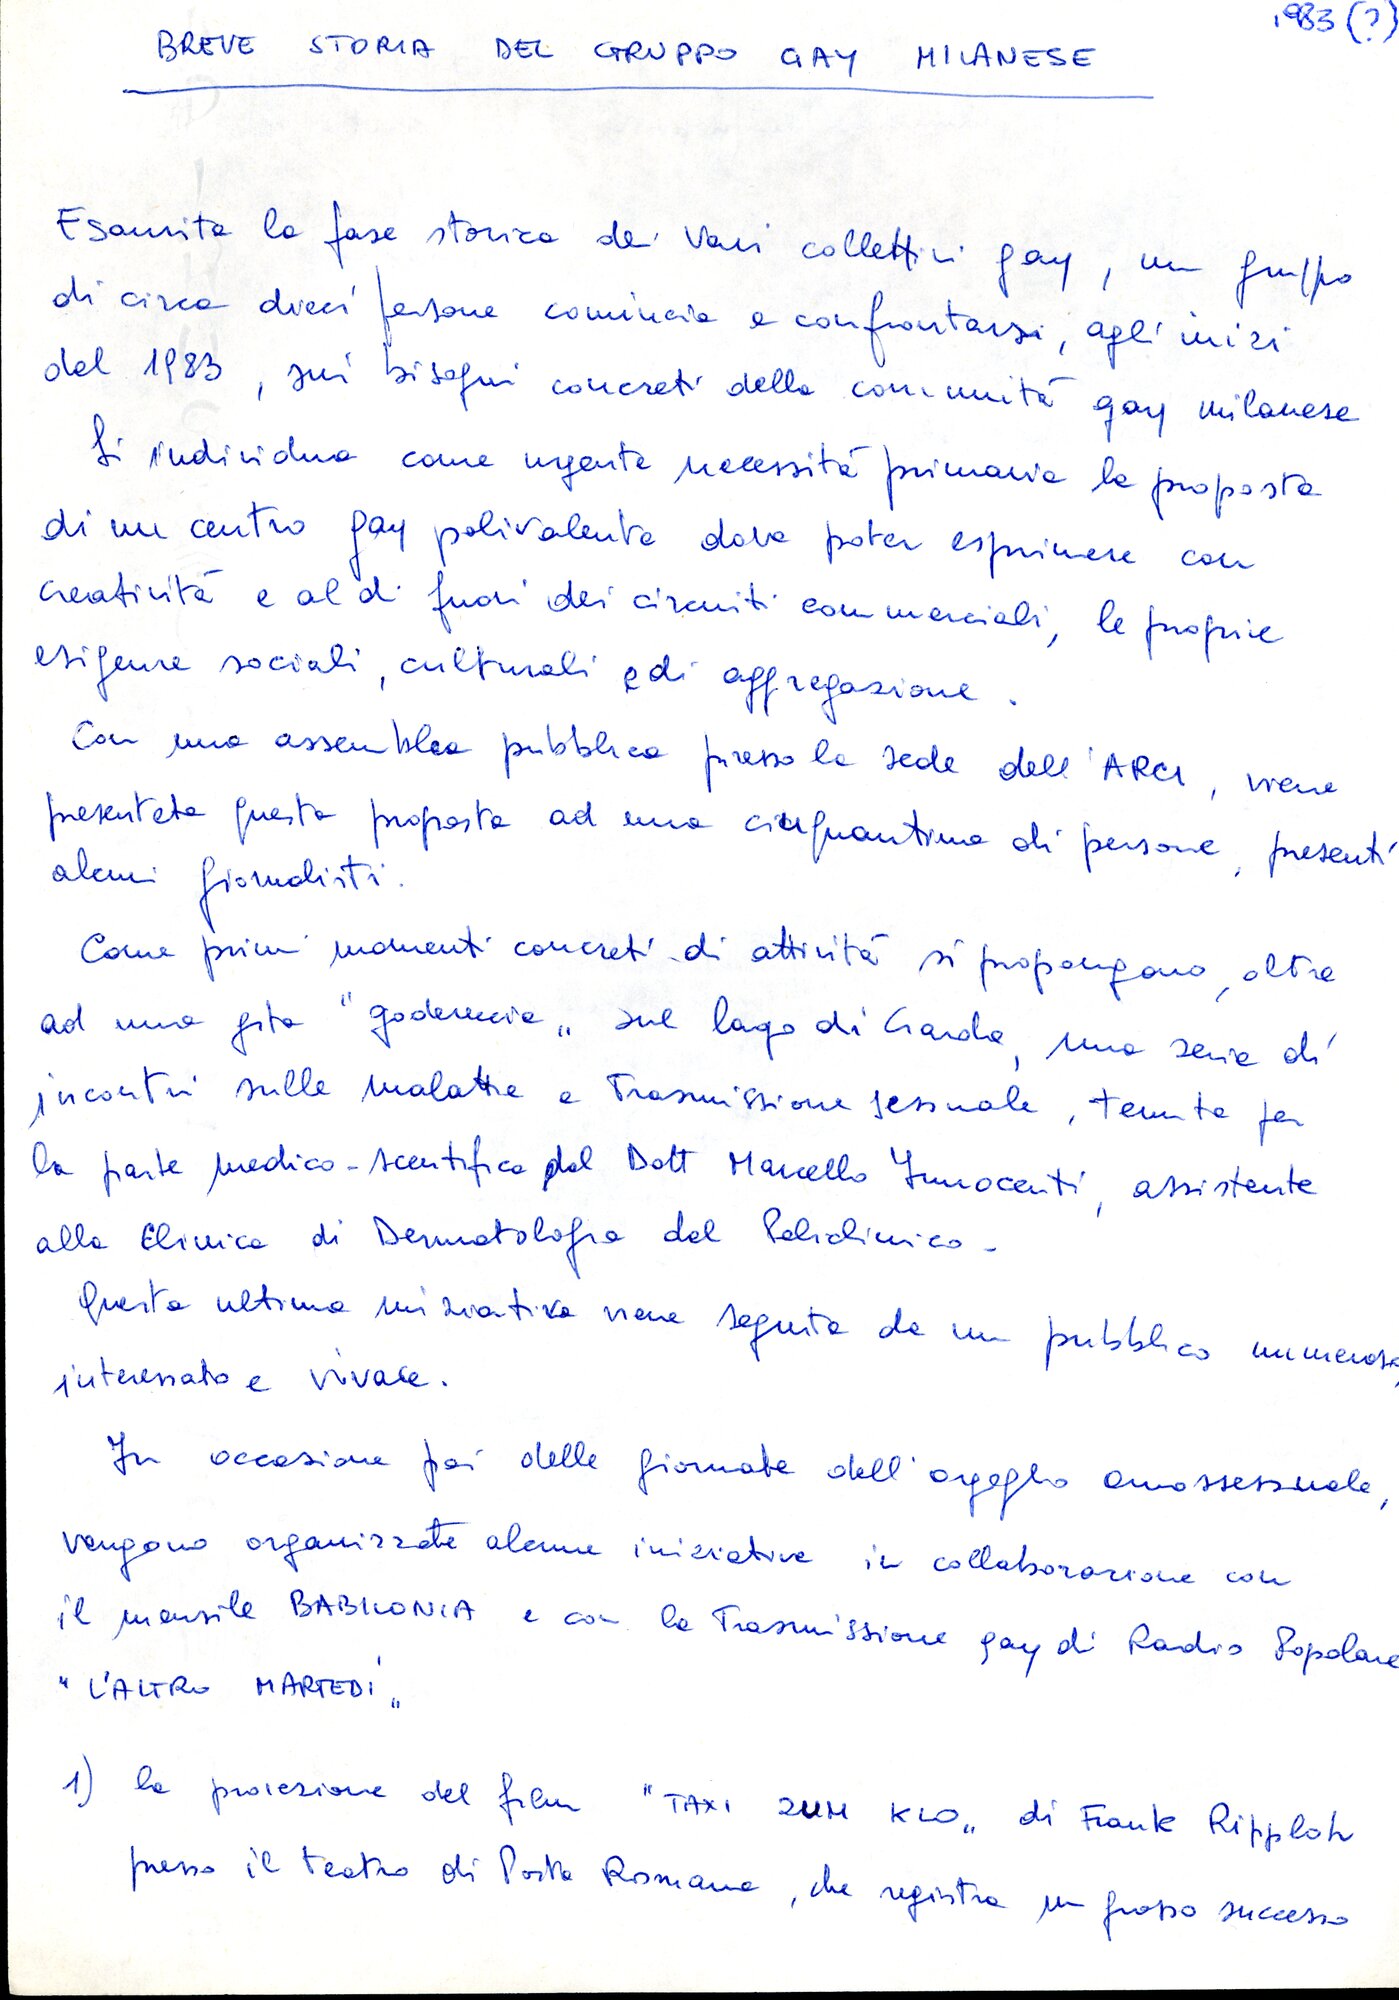 1983 (?)
BREVE STORIA DEL GRUPPO GAY MILANESE
Esaurita la fase storica dei vari collettivi gay, un gruppo
di circa dieci persone comincia a confrontarsi, agli inizi
del 1983, sui bisogni concreti della comunità gay milanese
Si individua come urgente necessità primaria la proposta
di un centro gay polivalente dove poter esprimere con
creatività e al di fuori dei circuiti commerciali, le proprie
esigenze sociali, culturali e di aggregazione.
Con una assemblea pubblica presso la sede dell'ARCI, viene
presentata questa proposta ad una cinquantina di persone, presenti
alcuni giornalisti.
Come primi momenti concreti di attività si propongono, oltre
ad una gita "godereccia" sul lago di Garda, una serie di
incontri sulle malattie a trasmissione sessuale, tenute per
la parte medico-scentifica dal Dott Marcello Innocenti, assistente
alla Clinica di Dermatologia del Policlinico -
Questa ultima iniziativa viene seguita da un pubblico numeroso,
interessato e vivace.
In occasione poi delle giornate dell'orgoglio omossessuale,
vengono organizzate alcune iniziative in collaborazione con
il mensile BABILONIA e con la Trasmissione gay di Radio Popolare
"L'ALTRO MARTEDÍ"
1) la proiezione del film "TAXI ZUM KLO" di Frank Ripploh
presso il teatro di Porta Romana, che registra un grosso successo